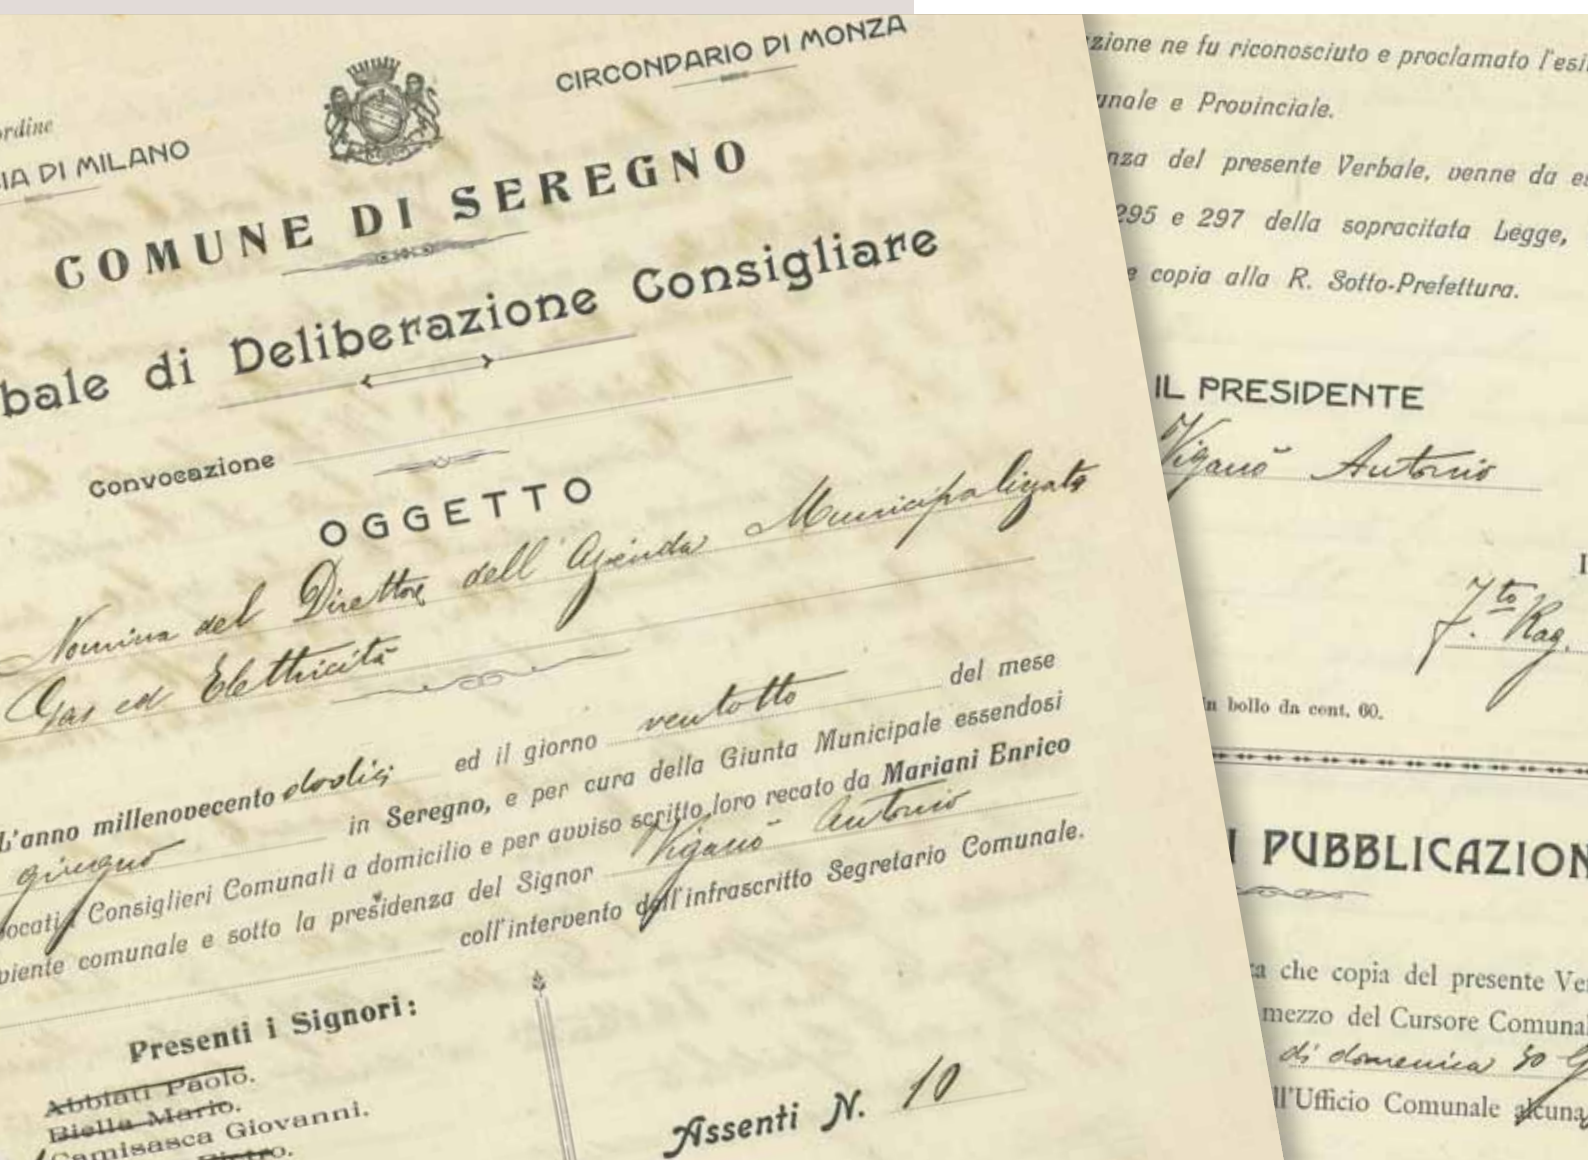 CIRCONDARIO DI MONZA
DI MILANO
COMUNE DI SEREGNO
bale di Deliberazione Consigliare
Convocazione
OGGETTO
Nomina del Direttore dell'Azienda Municipalizzata
Gas ed Elettricità
L'anno millenovecento dodici ed il giorno ventotto del mese
giugno in Seregno, e per cura della Giunta Municipale essendosi
ocati i Consiglieri Comunali a domicilio e per avviso scritto loro recato da Mariani Enrico
piente comunale e sotto la presidenza del Signor Viganò Antonio
coll'intervento dell'infrascritto Segretario Comunale.
Presenti i Signori:
Abbiati Paolo.
Biella Mario.
Camisasca Giovanni.
Pietro.
Assenti N. 10
zione ne fu riconosciuto e proclamato l'esi
unale e Provinciale.
nza del presente Verbale, venne da es
295 e 297 della sopracitata Legge,
e copia alla R. Sotto-Prefettura.
IL PRESIDENTE
Viganò Antonio
F.to Rag.
in bollo da cent. 60.
I PUBBLICAZION
a che copia del presente Ver
mezzo del Cursore Comunal
di domenica 30 G
ll'Ufficio Comunale alcuna